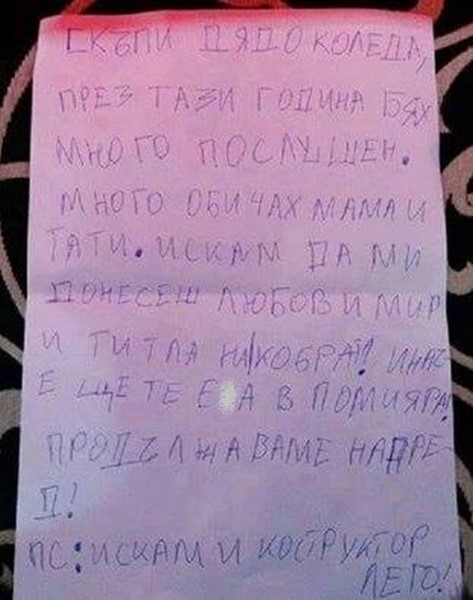 СКЪПИ ДЯДО КОЛЕДА,
ПРЕЗ ТАЗИ ГОДИНА БЯХ
МНОГО ПОСЛУШЕН.
МНОГО ОБИЧАХ МАМА И
ТАТИ. ИСКАМ ДА МИ
ДОНЕСЕШ ЛЮБОВ И МИР
И ТИТЛА НА КОБРАТ!! ИНАЧ
Е ЩЕ ТЕ Е А В ПОМИЯРА!
ПРОДЪЛЖАВАМЕ НАПРЕ
Д!
ПС: ИСКАМ И КОСТРУКТОР
ЛЕГО!